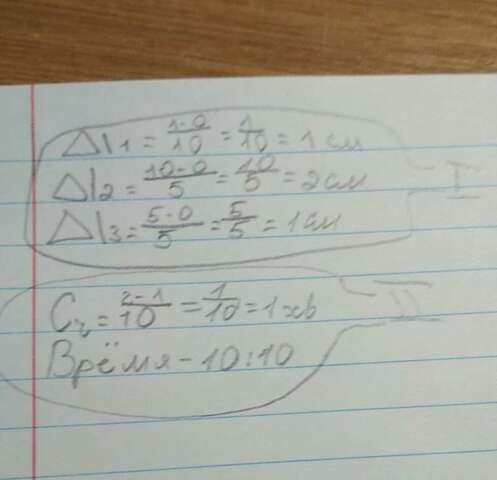 Δl₁ = (1-0)/10 = 1/10 = 1 см
Δl₂ = (10-0)/5 = 10/5 = 2 см
Δl₃ = (5-0)/5 = 5/5 = 1 см
I
C₂ = (2-1)/10 = 1/10 = 1 хв
II
Врёмя - 10:10